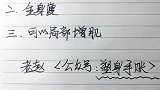 二. 全身瘦
三. 可以局部增肌
老赵 《公众号: 塑身手账》